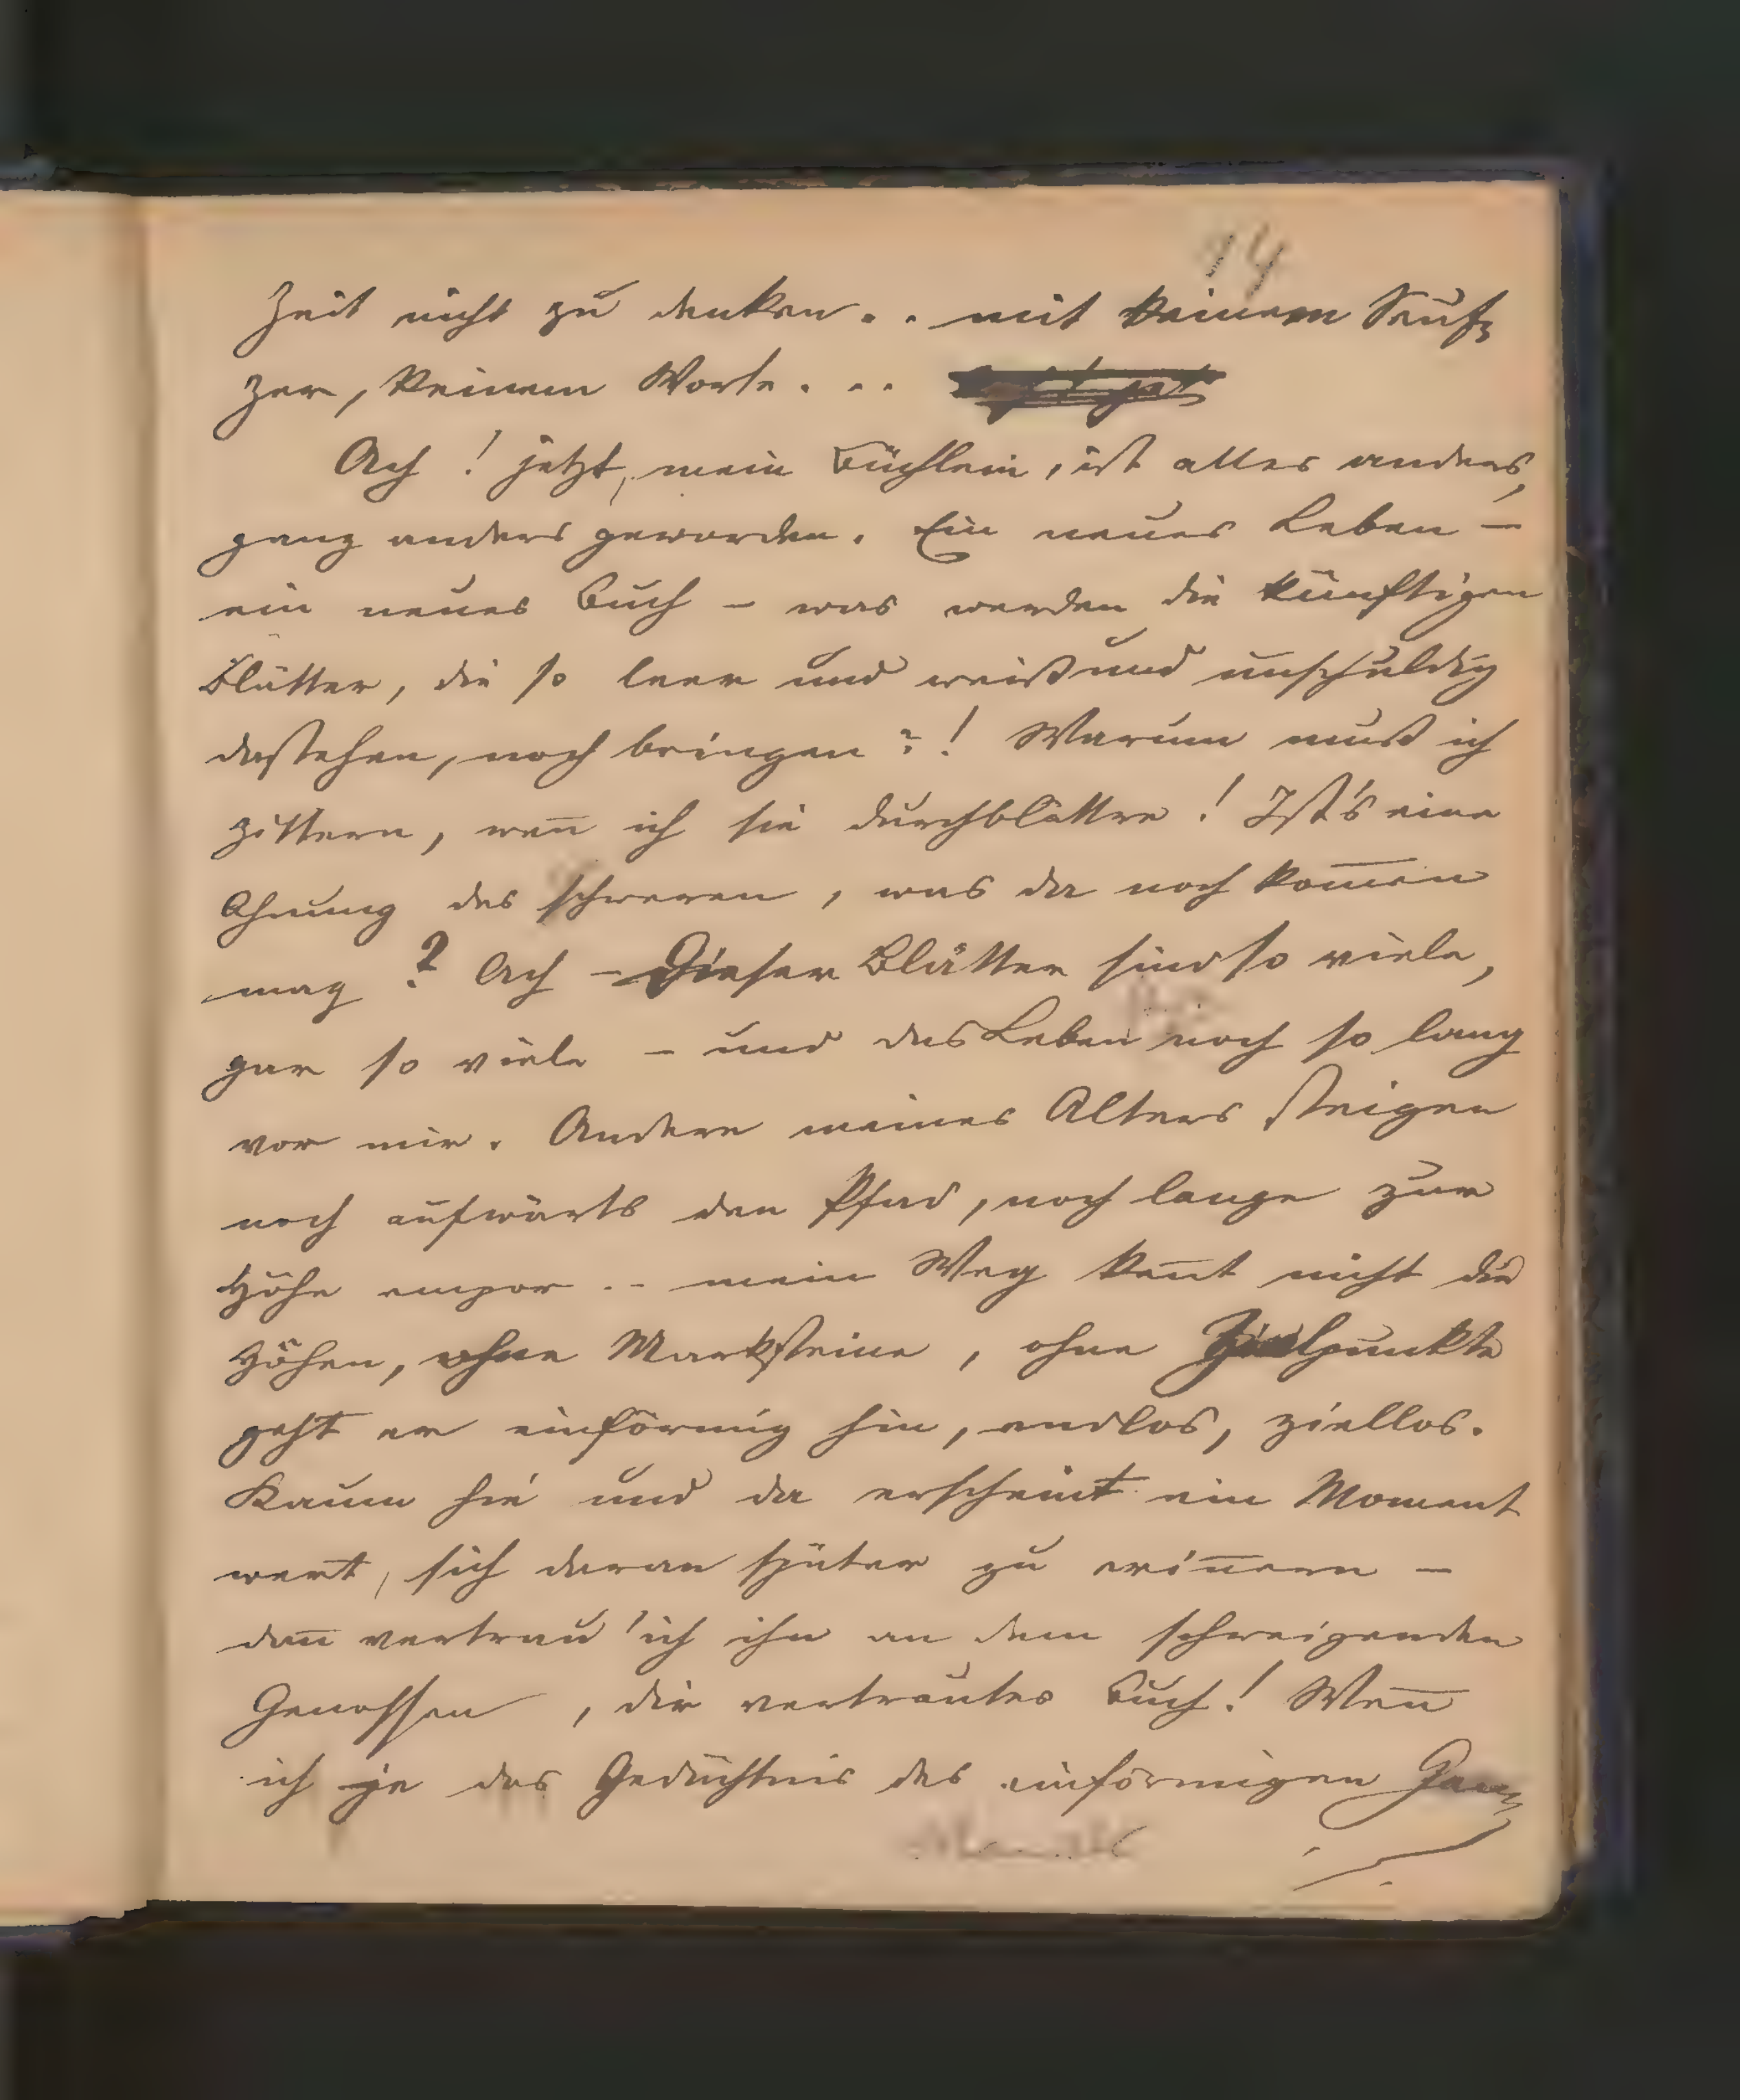 14
Zeit nicht zu denken . . mit keinem Seuf-
zer, keinem Worte . . .
Ach! jetzt, mein Büchlein, ist alles anders,
ganz anders geworden. Ein neues Leben –
ein neues Buch – was werden die künftigen
Blätter, die so leer und weiß und unschuldig
dastehen, noch bringen?! Warum muß ich
zittern, weñ ich sie durchblättre! Ist's eine
Ahnung des schweren, was da noch kom̄en
mag? Ach – dieser Blätter sind so viele,
gar so viele – und das Leben noch so lang
vor mir. Andere meines Alters steigen
noch aufwärts den Pfad, noch lange zur
Höhe empor .. mein Weg keñt nicht die
Höhen, ohne Marksteine, ohne Zielpunkte
geht er einförmig hin, endlos, ziellos.
Kaum hie und da erscheint ein Moment
wert, sich daran später zu eriñern –
dañ vertrau' ich ihn an dem schweigenden
Genossen, dir vertrautes Buch! Weñ
ich je das Gedächtnis des einförmigen